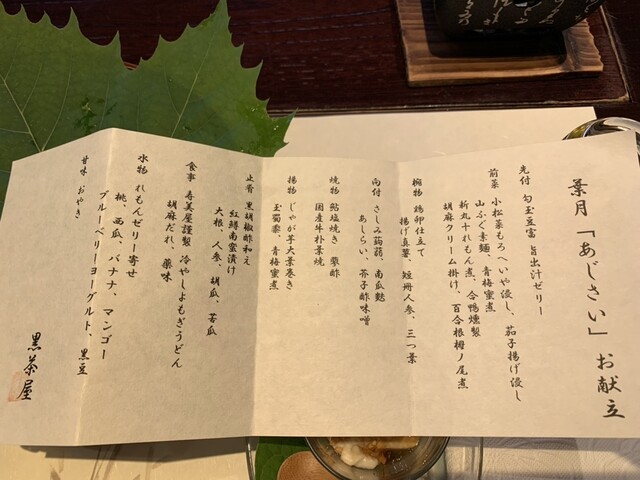 葉月「あじさい」お献立
先付 勾玉豆富 旨出汁ゼリー
前菜 小松菜もろへいや浸し、茄子揚げ浸し
山ふぐ素麺、青梅蜜煮
新丸十れもん煮、合鴨燻製
胡麻クリーム掛け、百合根栂ノ尾煮
椀物 鶏卵仕立て
揚げ真薯、短冊人参、三つ葉
向付 さしみ蒟蒻、南瓜麩
あしらい、芥子酢味噌
焼物 鮎塩焼き 蓼酢
国産牛朴葉焼
揚物 じゃが芋大葉巻き
玉蜀黍、青梅蜜煮
止肴 黒胡椒酢和え
紅鱒南蛮漬け
大根、人参、胡瓜、苦瓜
食事 寿美屋謹製 冷やしよもぎうどん
胡麻だれ、薬味
水物 れもんゼリー寄せ
桃、西瓜、バナナ、マンゴー
ブルーベリーヨーグルト、黒豆
甘味 おやき
黒茶屋